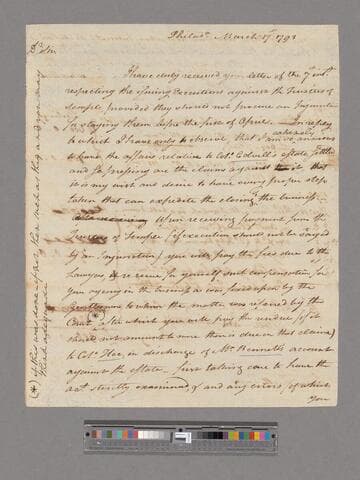 Philada. March 17 1793
Dr. Sir
I have duly received your letter of the 7 inst.
respecting the issuing Executions against the Trustees of
Semple, provided they should not procure an Injunction
for staying them before the first of April. In reply
to which I have only to observe, that I am so anxious
to have the affairs relative to Colo. Colvill's estate settled
and so pressing are the claims against it, that
it is my wish and desire to have every proper step
taken that can expedite the closing of the business.
Upon receiving payment from the
Trustees of Semple (if execution should not be stayed
by an Injunction) you will pay the fees due to the
Lawyers & reserve for yourself such compensation for
your agency in the business as was fixed upon by the
Gentlemen to whom the matter was referred by the
Court (*) after which you will pay the residue (if it
should not amount to more than is due on that claim)
to Colo. in discharge of Mr. Bennett's account
against the estate, first taking care to have the
act. strictly examined, and any errors, of which
you
(*) if this was done; if not, then such as they or any may
think adequate